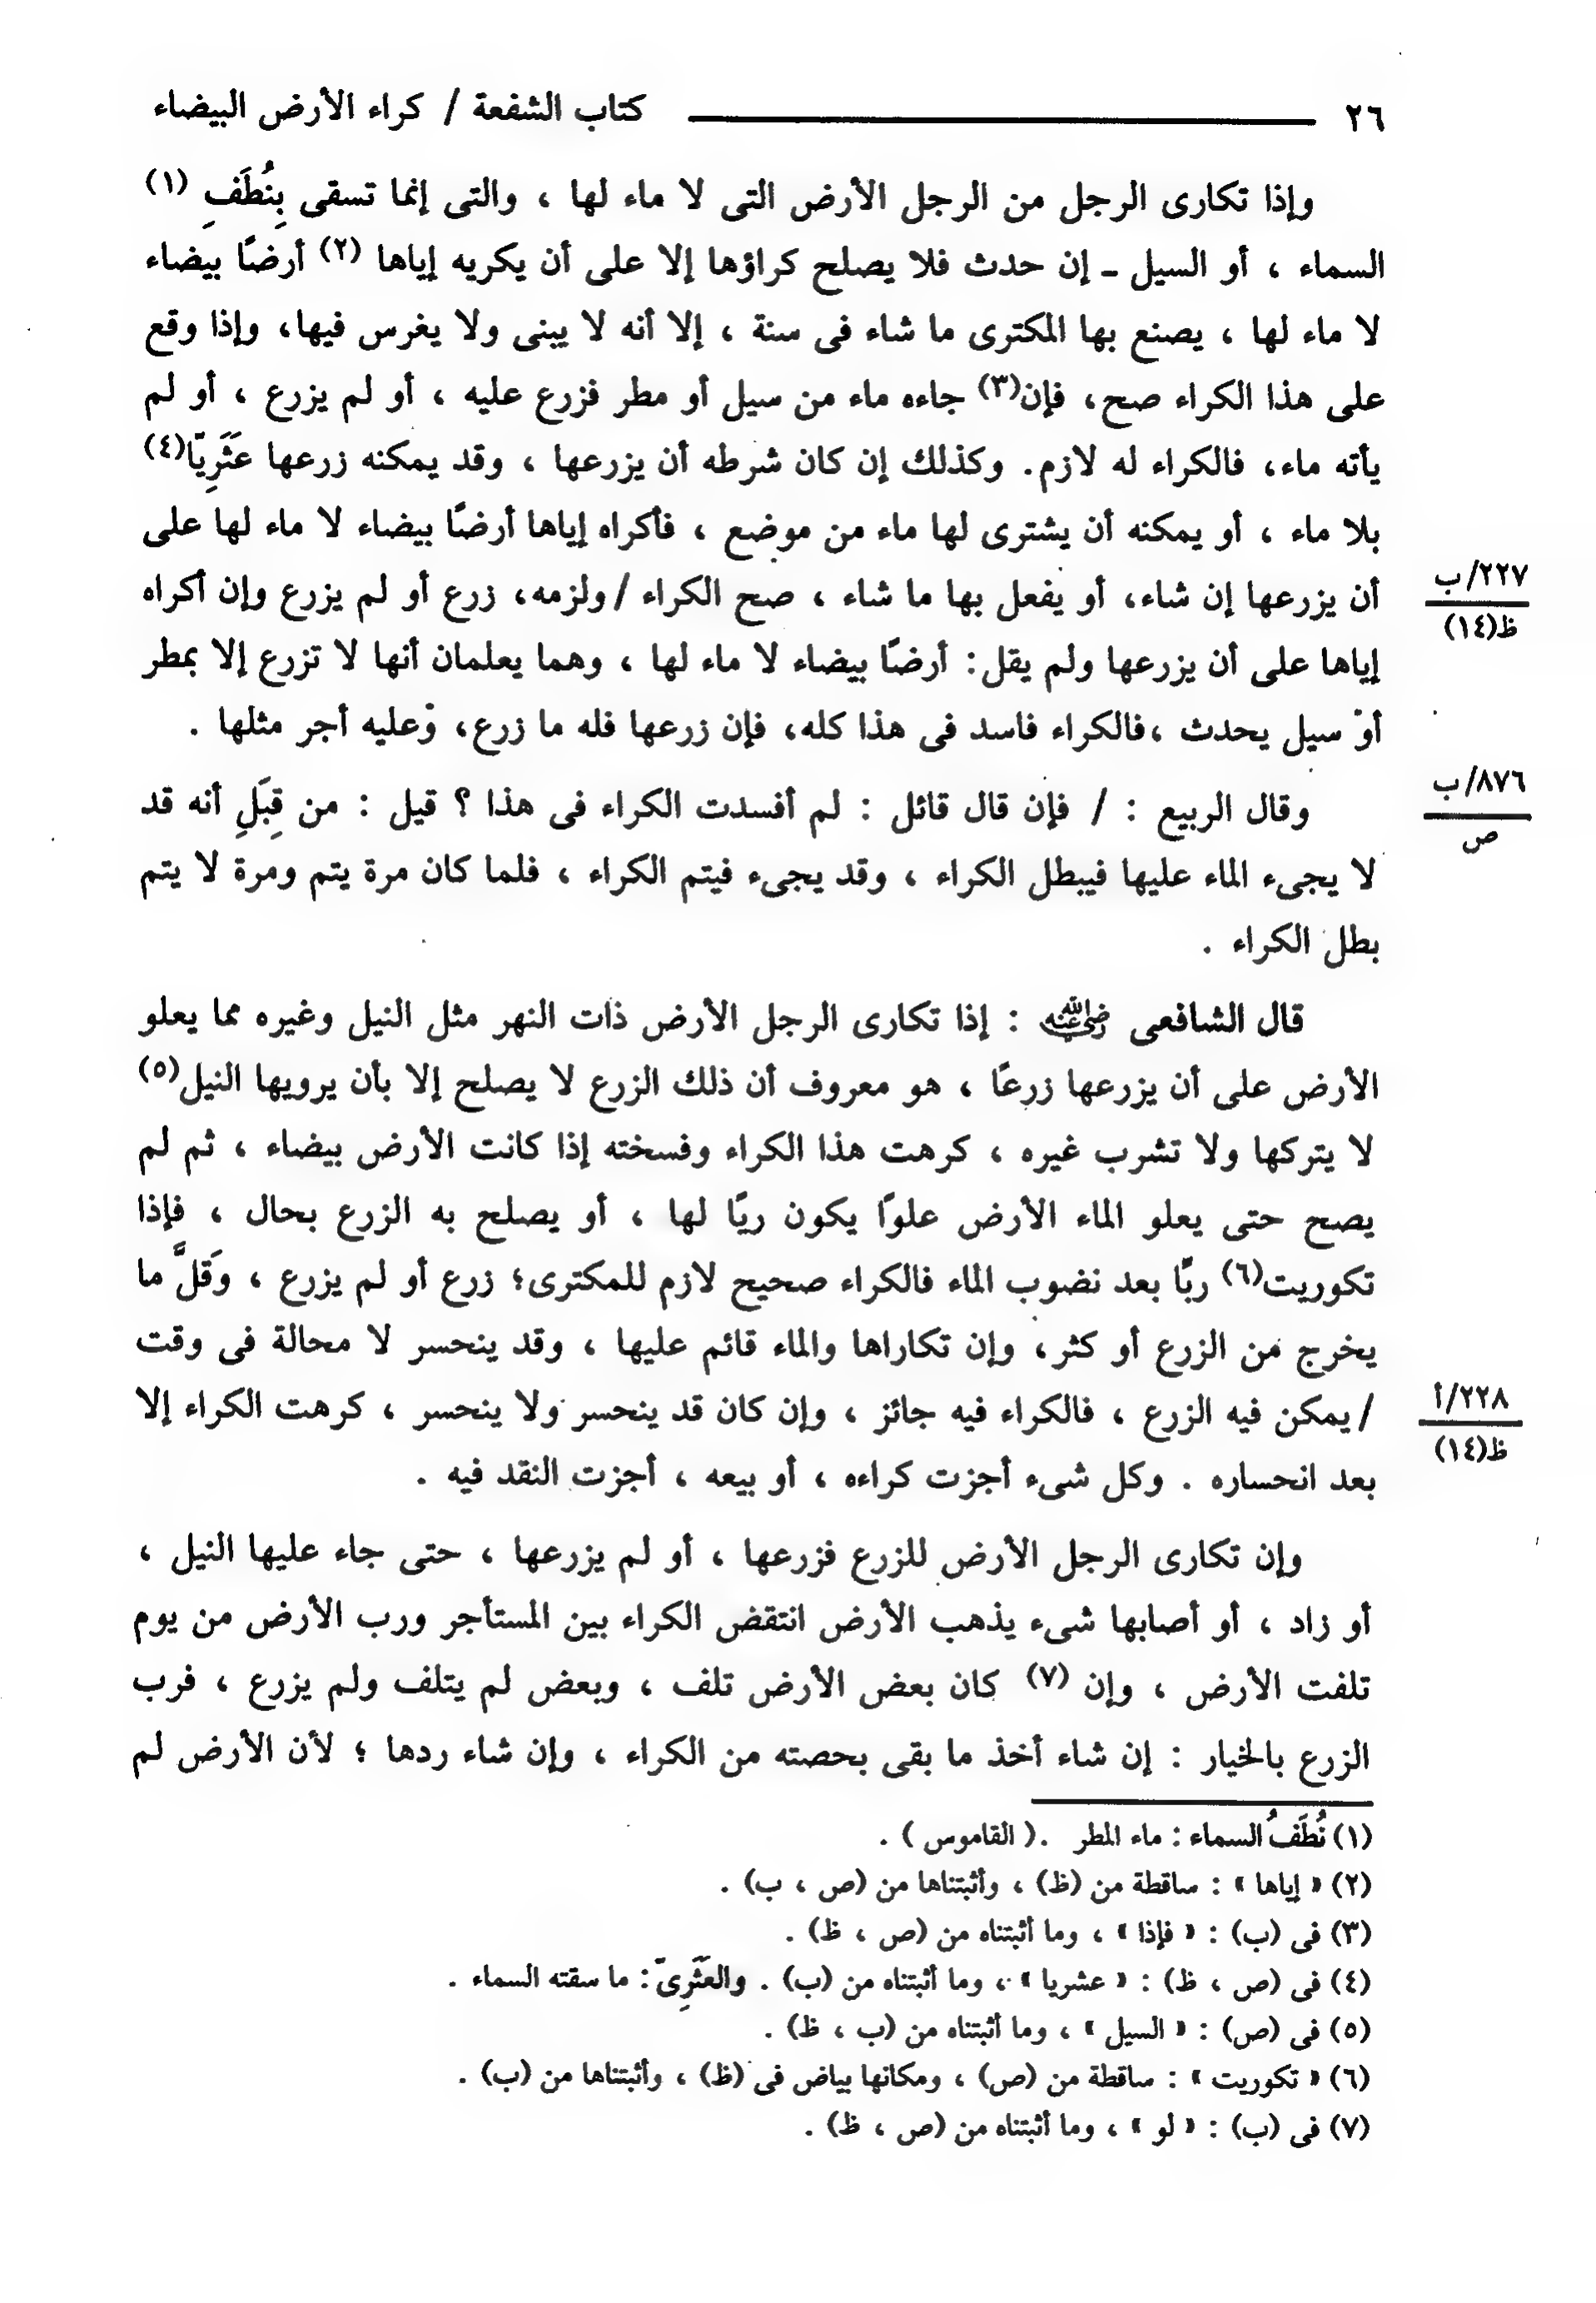 ٢٦ كتاب الشفعة / كراء الأرض البيضاء
وإذا تكارى الرجل من الرجل الأرض التى لا ماء لها ، والتى إنما تسقى بِنُطَفِ (١)
السماء ، أو السيل ـ إن حدث فلا يصلح كراؤها إلا على أن يكريه إياها (٢) أرضًا بيضاء
لا ماء لها ، يصنع بها المكترى ما شاء فى سنة ، إلا أنه لا يبنى ولا يغرس فيها، وإذا وقع
على هذا الكراء صح، فإن(٣) جاءه ماء من سيل أو مطر فزرع عليه ، أو لم يزرع ، أو لم
يأته ماء، فالكراء له لازم. وكذلك إن كان شرطه أن يزرعها ، وقد يمكنه زرعها عَثَرِيًّا(٤)
بلا ماء ، أو يمكنه أن يشترى لها ماء من موضع ، فأكراه إياها أرضًا بيضاء لا ماء لها على
أن يزرعها إن شاء، أو يفعل بها ما شاء ، صح الكراء /ولزمه، زرع أو لم يزرع وإن أكراه
٢٢٧/ب
ظ(١٤)
إياها على أن يزرعها ولم يقل: أرضًا بيضاء لا ماء لها ، وهما يعلمان أنها لا تزرع إلا بمطر
أو سيل يحدث ،فالكراء فاسد فى هذا كله، فإن زرعها فله ما زرع، وعليه أجر مثلها .
وقال الربيع : / فإن قال قائل : لم أفسدت الكراء فى هذا ؟ قيل : من قِبَلِ أنه قد
٨٧٦/ب
ص
لا يجىء الماء عليها فيبطل الكراء ، وقد يجىء فيتم الكراء ، فلما كان مرة يتم ومرة لا يتم
بطل الكراء .
قال الشافعى رضي الله عنه : إذا تكارى الرجل الأرض ذات النهر مثل النيل وغيره مما يعلو
الأرض على أن يزرعها زرعًا ، هو معروف أن ذلك الزرع لا يصلح إلا بأن يرويها النيل(٥)
لا يتركها ولا تشرب غيره ، كرهت هذا الكراء وفسخته إذا كانت الأرض بيضاء ، ثم لم
يصح حتى يعلو الماء الأرض علوًا يكون ريًا لها ، أو يصلح به الزرع بحال ، فإذا
تكوريت(٦) ريًّا بعد نضوب الماء فالكراء صحيح لازم للمكترى؛ زرع أو لم يزرع ، وَقَلَّ ما
يخرج من الزرع أو كثر، وإن تكاراها والماء قائم عليها ، وقد ينحسر لا محالة فى وقت
/يمكن فيه الزرع ، فالكراء فيه جائز ، وإن كان قد ينحسر ولا ينحسر ، كرهت الكراء إلا
٢٢٨/أ
ظ(١٤)
بعد انحساره . وكل شىء أجزت كراءه ، أو بيعه ، أجزت النقد فيه .
وإن تكارى الرجل الأرض للزرع فزرعها ، أو لم يزرعها ، حتى جاء عليها النيل ،
أو زاد ، أو أصابها شىء يذهب الأرض انتقض الكراء بين المستأجر ورب الأرض من يوم
تلفت الأرض ، وإن (٧) كان بعض الأرض تلف ، وبعض لم يتلف ولم يزرع ، فرب
الزرع بالخيار : إن شاء أخذ ما بقى بحصته من الكراء ، وإن شاء ردها ؛ لأن الأرض لم
(١) نُطَفُ السماء : ماء المطر .( القاموس ) .
(٢) « إياها » : ساقطة من (ظ) ، وأثبتناها من (ص ، ب) .
(٣) فى (ب) : « فإذا » ، وما أثبتناه من (ص ، ظ) .
(٤) فى (ص ، ظ) : « عشريا » ، وما أثبتناه من (ب) . والعَثَرِىّ: ما سقته السماء .
(٥) فى (ص) : « السيل » ، وما أثبتناه من (ب ، ظ) .
(٦) « تكوريت » : ساقطة من (ص) ، ومكانها بياض فى (ظ) ، وأثبتناها من (ب) .
(٧) فى (ب) : « لو » ، وما أثبتناه من (ص ، ظ) .